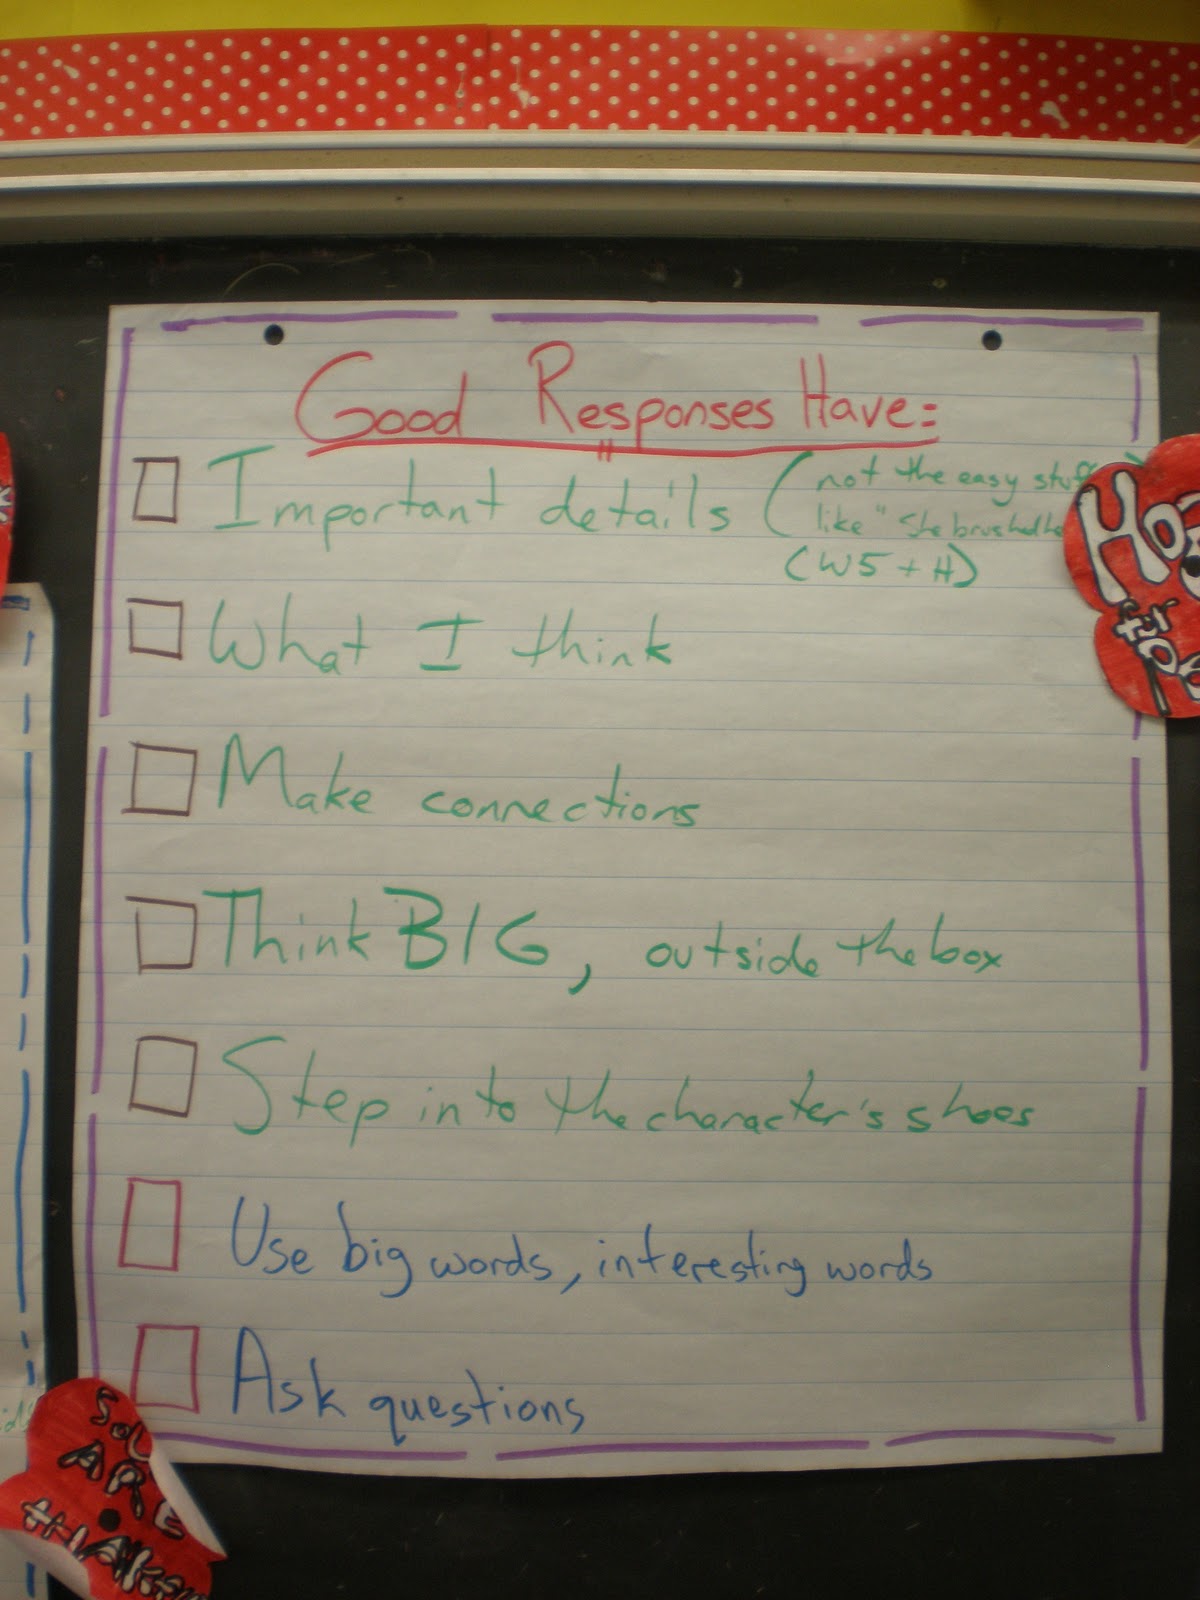 Good Responses Have:
Important details (not the easy stuff
like "She brushed
(W5 + H)
What I think
Make connections
Think BIG, outside the box
Step into the character's shoes
Use big words, interesting words
Ask questions
ARE